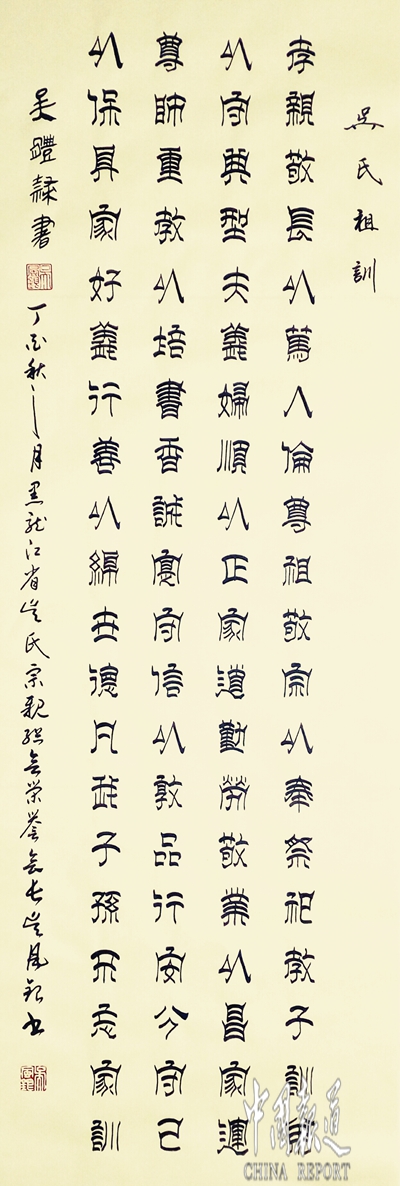 吴氏祖訓
孝親敬長以篤人倫尊祖敬宗以奉祭祀教子訓
以守典型夫義婦順以正家道勤勞敬業以昌家運
尊師重教以培書香誠實守信以敦品行安分守己
以保身家好義行善以綿世德凡我子孫不忘家訓
吴體隸書
丁酉秋之月黑龙江省吴氏宗親總会荣誉会长吴凤书
中国报道
CHINA REPORT